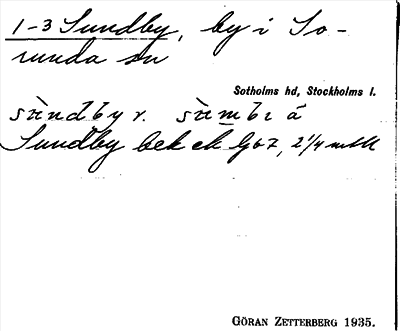 1-3 Sundby, by i So-
runda sn
Sotholms hd, Stockholms l.
sùndby r. sùmbı á
Sundby bek ek Gb 7, 2 1/4 mtl
GÖRAN ZETTERBERG 1935.